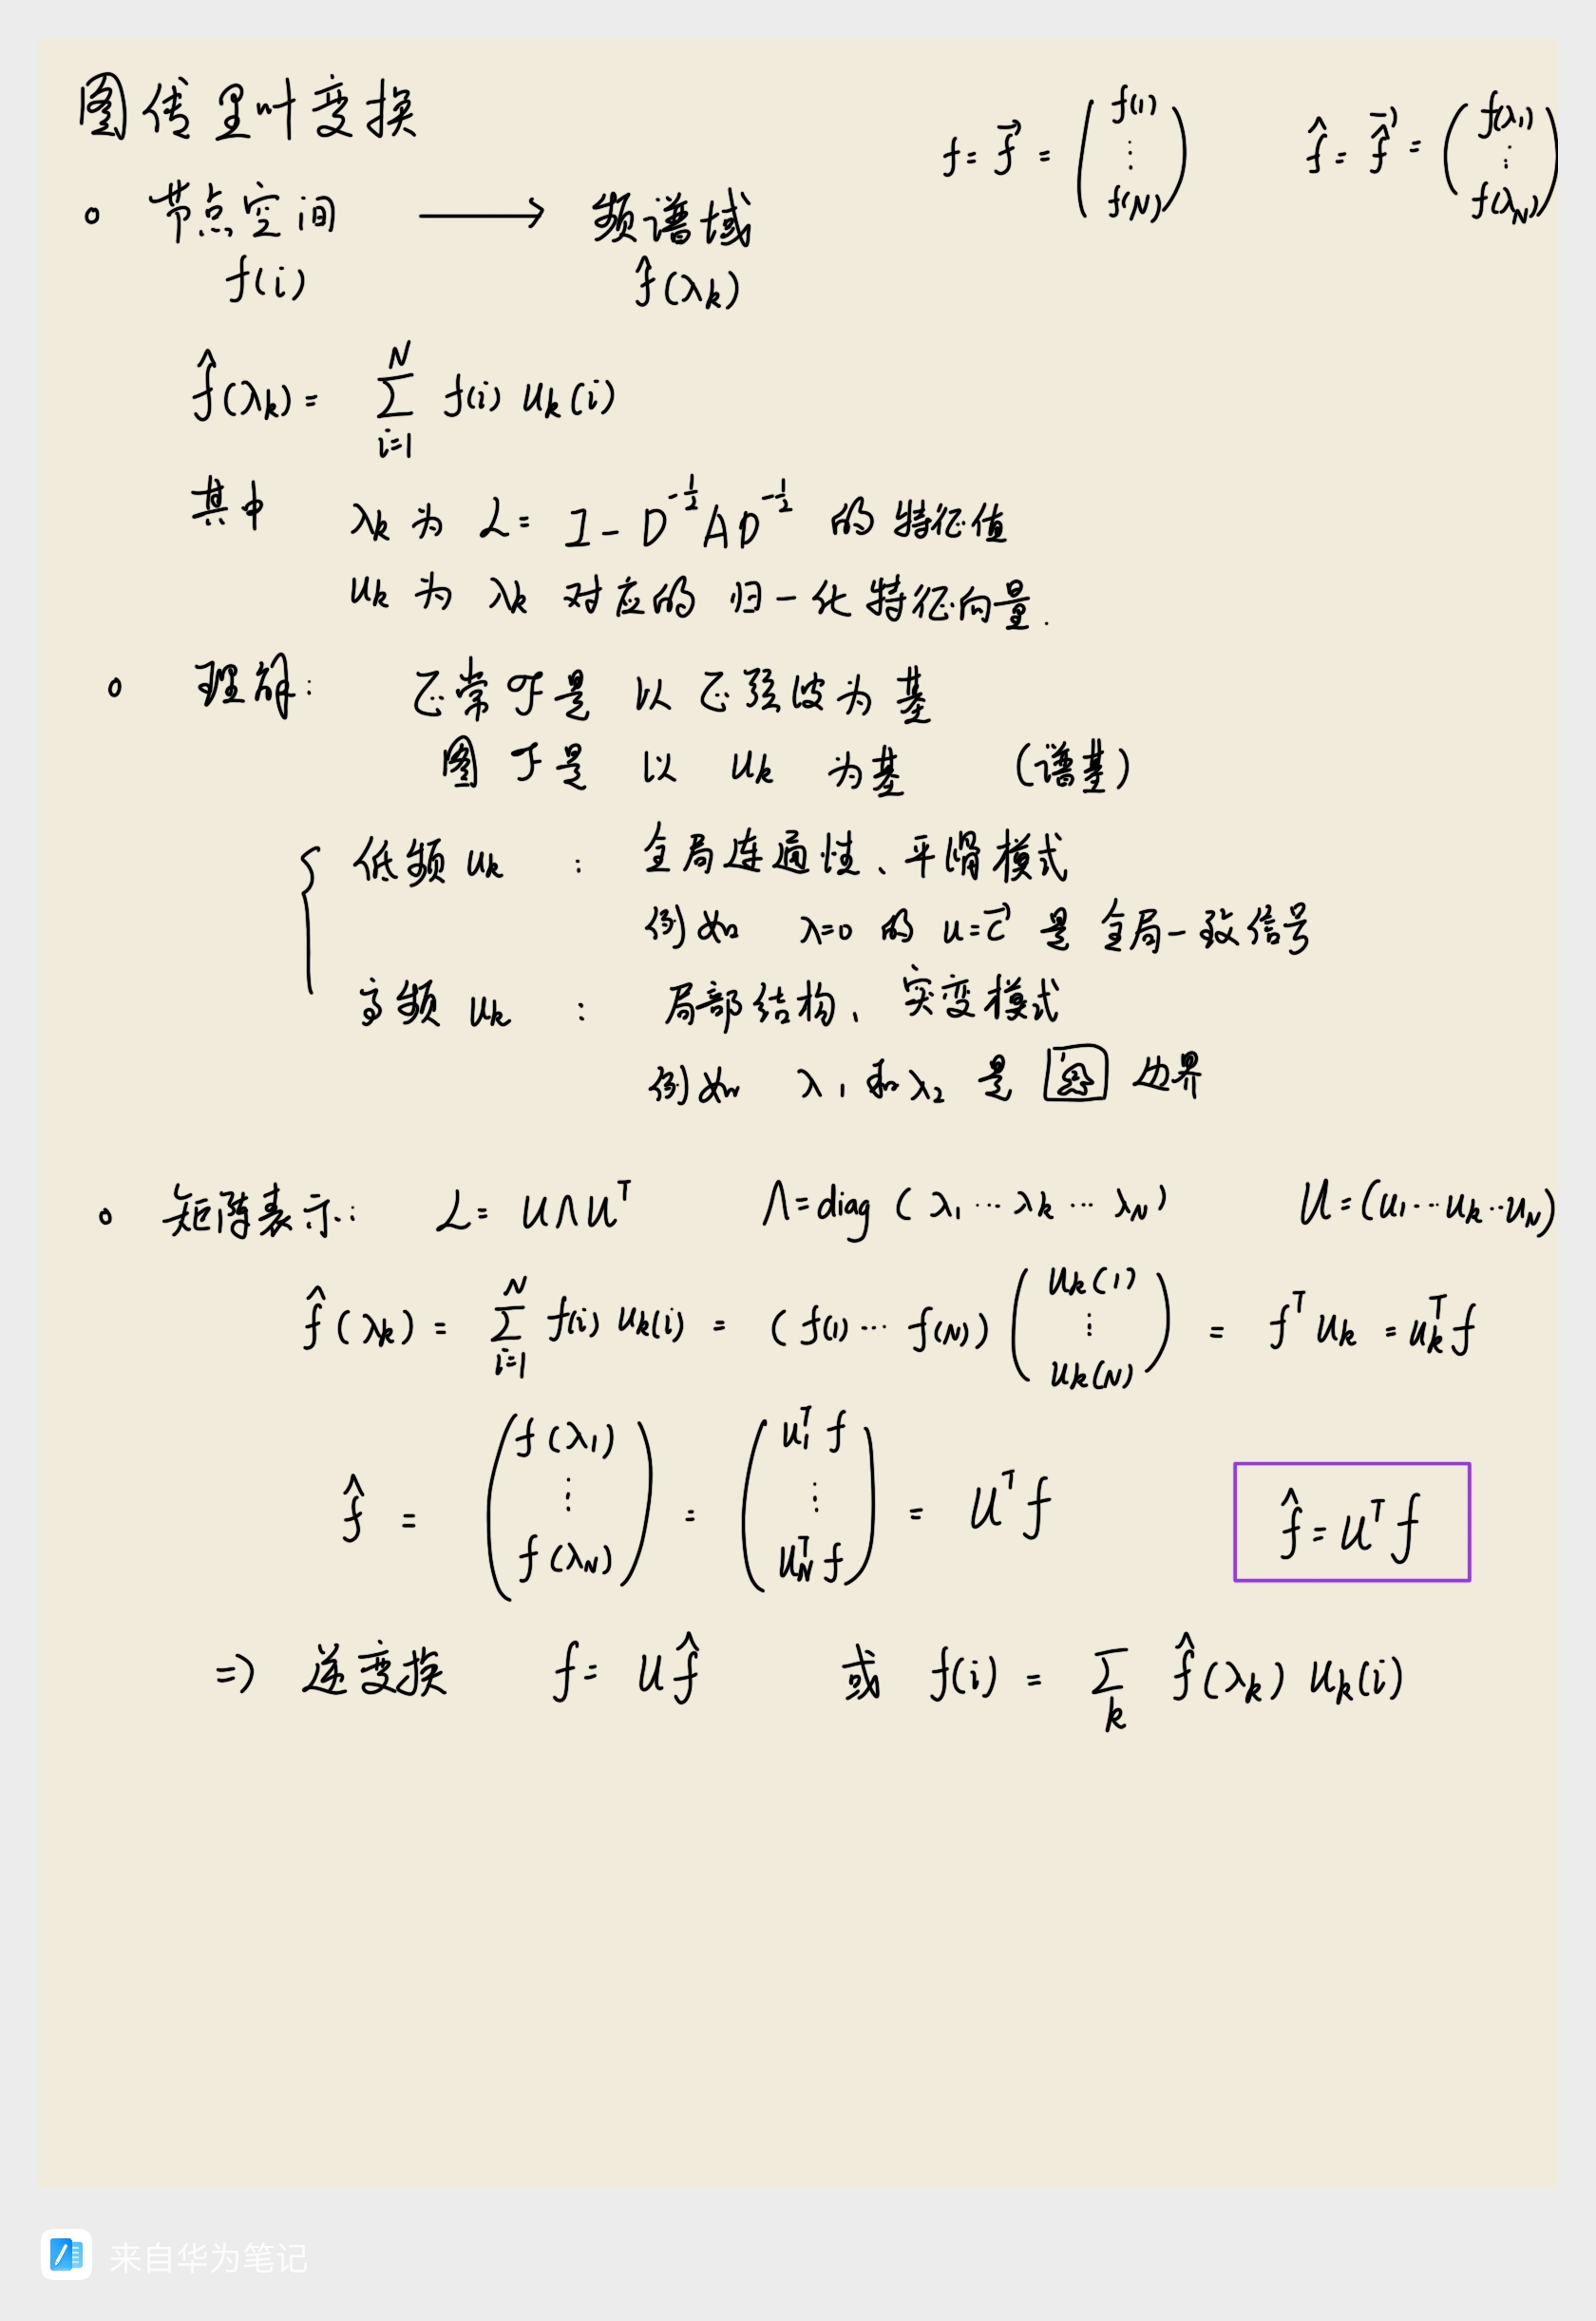 图傅里叶变换
f = f⃗ = ( f(1) ⋮ f(N) )  f̂ = f̂⃗ = ( f(λ₁) ⋮ f(λ_N) )
○ 节点空间 ⟶ 频谱域
f(i)  f̂(λₖ)
f̂(λₖ) = ∑_{i=1}^{N} f(i) uₖ(i)
其中 λₖ 为 ℒ = I - D^{-1/2} A D^{-1/2} 的特征值
uₖ 为 λₖ 对应的 归一化特征向量.
○ 理解: 正常 ℱ 是 以 正弦波为基
图 ℱ 是 以 uₖ 为基 (谱基)
{ 低频 uₖ : 全局连通性、平滑模式
例如 λ=0 的 u=c⃗ 是 全局一致信号
高频 uₖ : 局部结构、突变模式
例如 λ₁ 和 λ₂ 是 边界
○ 矩阵表示: ℒ = UΛUᵀ  Λ = diag ( λ₁ ⋯ λₖ ⋯ λ_N )  U = (u₁ ⋯ uₖ ⋯ u_N)
f̂(λₖ) = ∑_{i=1}^{N} f(i) uₖ(i) = ( f(1) ⋯ f(N) ) ( uₖ(1) ⋮ uₖ(N) ) = fᵀ uₖ = uₖᵀ f
f̂ = ( f(λ₁) ⋮ f(λ_N) ) = ( u₁ᵀ f ⋮ u_Nᵀ f ) = Uᵀ f  f̂ = Uᵀ f
⇒ 逆变换 f = U f̂ 或 f(i) = ∑ₖ f̂(λₖ) uₖ(i)
来自华为笔记